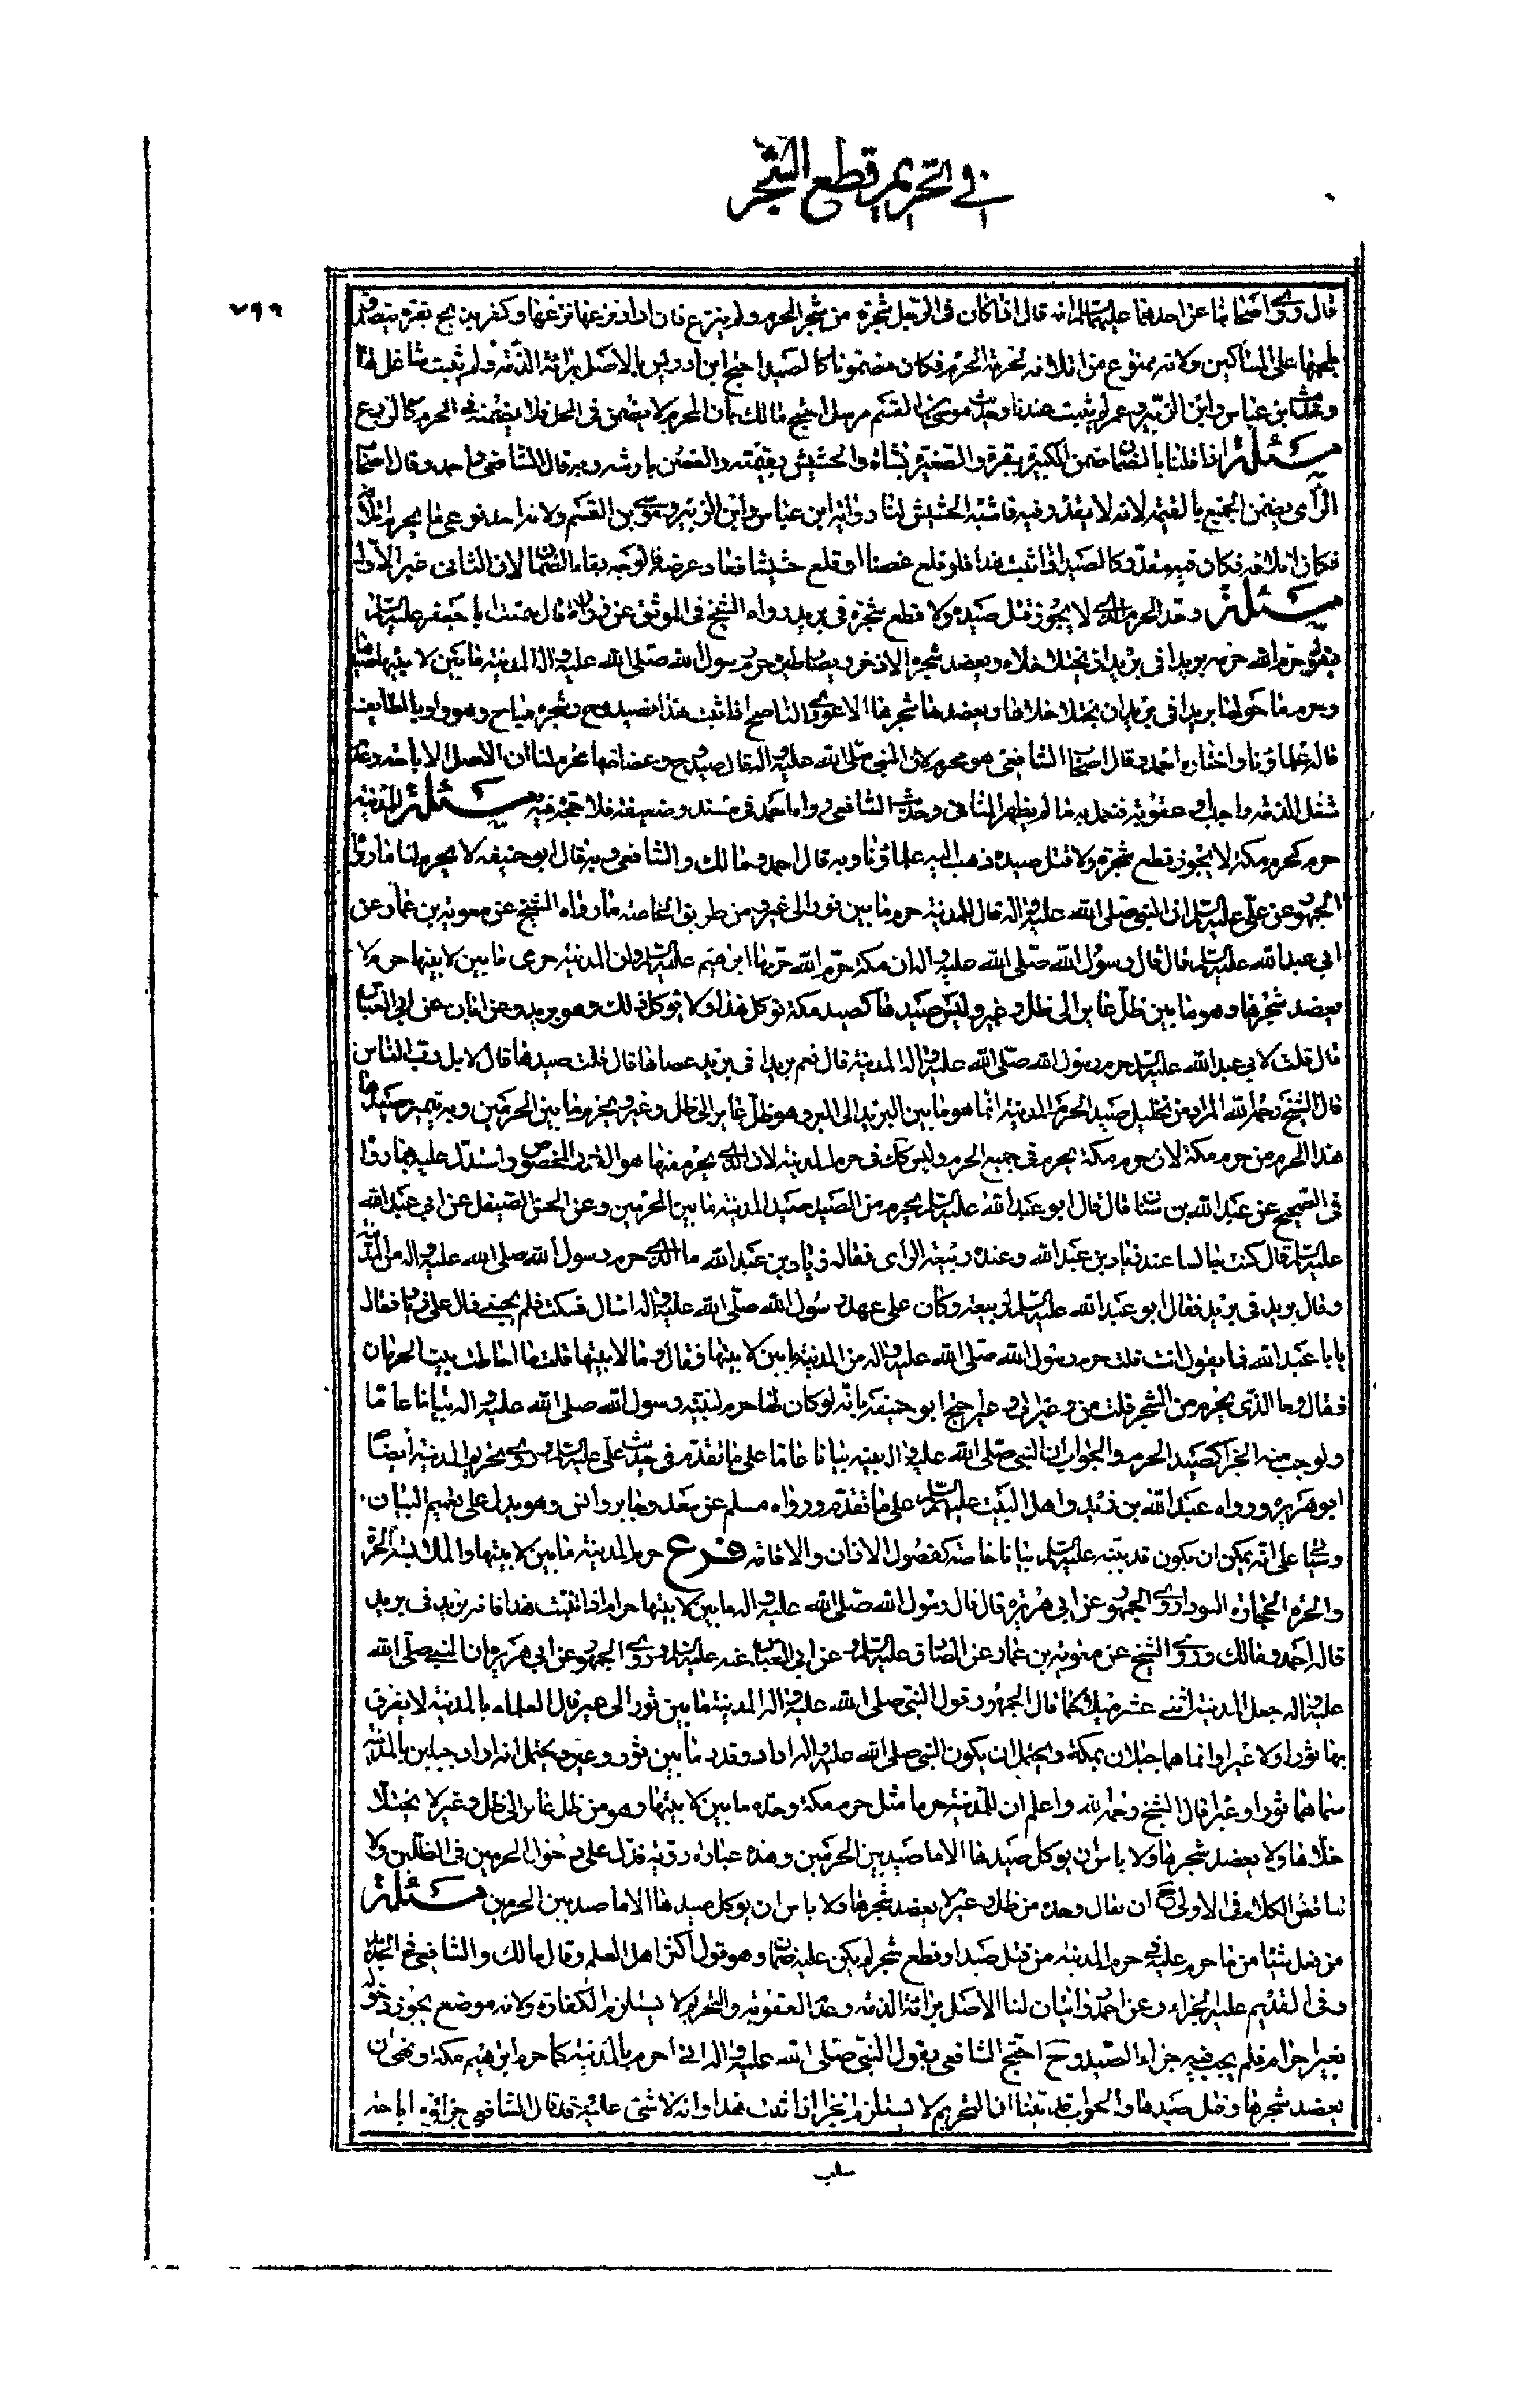 في تحريم قطع الشجر
٧٩٩
قال روى اصحابنا عن احدهما عليهما السلم انه قال اذا كان في الرجل شجرة من شجر الحرم ولم ينزع فان اراد نزعها نزعها وكفر بذبح بقرة يتصدق
بلحمها على المساكين ولانه ممنوع من اتلافه لحرمة الحرم فكان مضمونا كالصيد احتج ابن ادريس بالاصل براءة الذمة ولم يثبت شاغل لها
وحديث ابن عباس وابن الزبير وعمر لم يثبت عندنا وحديث موسى بن القسم مرسل احتج مالك بان المحرم لا يضمن في الحل فلا يضمنه في الحرم كالزرع
مسئلة اذا قلنا بالضمان ضمن الكبيرة ببقرة والصغيرة بشاة والحشيش بقيمته والغصن بارشه وبه قال الشافعي واحمد وقال اصحاب
الراى يضمن الجميع بالقيمة لانه لا يقدر فيه فاشبه الحشيش لنا رواية ابن عباس وابن الزبير وموسى بن القسم ولانه احد نوعي ما يحرم اتلافه
فكان في اتلافه فكان فيه مقدر كالصيد اذا ثبت هذا فلو قلع غصنا او قلع حشيشا فعاد عوضه فالوجه بقاء الضمان لان الثاني غير الاول
مسئلة وحد الحرم الذي لا يجوز قتل صيده ولا قطع شجره في بريد رواه الشيخ في الموثق عن زرارة قال سمعت ابا جعفر عليه السلم
يقول حرم الله حرمه بريدا في بريد ان يختلا خلاه ويعضد شجره الا الاذخر او يصاد طيره وحرم رسول الله صلى الله عليه واله المدينة ما بين لابتيها صيدها
وحرم ما حولها بريدا في بريد ان يختلا خلاها ويعضد ها شجرها الا عودى الناضح اذا ثبت هذا فصيد وج وشجره مباح وهو واد بالطايف
قاله علماؤنا واختاره احمد وقال اصحاب الشافعي هو محرم لان النبي صلى الله عليه واله قال صيد وج وعضاهها محرم لنا ان الاصل الاباحة وعدم
شغل الذمة واجب او عقوبة فنعمل به ما لم يظهر المنافي وحديث الشافعي رواه احمد في مسنده وضعيفه فلا حجة فيه مسئلة للمدينة
حرم كحرم مكة لا يجوز قطع شجره ولا قتل صيده ذهب اليه علماؤنا وبه قال احمد ومالك والشافعي وبه قال ابو حنيفه لا يحرم لنا ما رواه
الجمهور عن علي عليه السلم ان النبي صلى الله عليه واله قال المدينة حرم ما بين ثور الى عير ومن طريق الخاصة ما رواه الشيخ عن معوية بن عمار عن
ابي عبد الله عليه السلم قال قال رسول الله صلى الله عليه واله ان مكة حرم الله حرمها ابرهيم عليه السلم وان المدينة حرمي ما بين لابتيها حرم لا
يعضد شجرها وهو ما بين ظل عاير الى ظل وعير وليس صيدها كصيد مكة توكل هذا ولا توكل ذلك وهو بريد وعن ابان عن ابي العباس
قال قلت لابي عبد الله عليه السلم حرم رسول الله صلى الله عليه واله المدينة قال نعم بريدا في بريد عضاها قال قلت صيدها قال لا يكذب الناس
قال الشيخ رحمه الله المراد من تحليل صيد الحرم المدينة انما هو ما بين البريد الى البريد وهو ظل عاير الى ظل وعير ويحرم ما بين الحرمين وبه تميز صيد
هذا الحرم من حرم مكة لان حرم مكة يحرم في جميع الحرم وليس كك في حرم المدينة لان الذي يحرم منها هو القدر المخصوص واستدل عليه بما رواه
في الصحيح عن عبد الله بن سنان قال قال ابو عبد الله عليه السلم يحرم من الصيد صيد المدينة ما بين الحرمين وعن الحسن الصيقل عن ابي عبد الله
عليه السلم قال كنت جالسا عند زياد بن عبد الله وعنده ربيعة الراى فقال له زياد بن عبد الله ما الذي حرم رسول الله صلى الله عليه واله من المدينة
وقال بريد في بريد فقال ابو عبد الله عليه السلم لربيعة وكان على عهد رسول الله صلى الله عليه واله اميال فسكت فلم يجبه فقال علي زياد فقال
يا با عبد الله فما يقول انت قلت حرم رسول الله صلى الله عليه واله من المدينة ما بين لابتيها فقال وما لابتيها قلت ما احاطت به الحرتان
فقال وما الذي يحرم من الشجر قلت من وعير الى وعير احتج ابو حنيفة بانه لو كان لها حرم لبينه رسول الله صلى الله عليه واله بيانا عاما
ولوجب فيه الجزاء كصيد الحرم والجواب ان النبي صلى الله عليه واله بينه بيانا عاما على ما تقدم في حديث علي عليه السلم وروى تحريم المدينة ايضا
ابو هريرة ورواه عبد الله بن زيد واهل البيت عليهم السلم على ما تقدم ورواه مسلم عن سعد وجابر وانس وهو يدل على تعميم البيان
وسيأتي على انه يمكن ان يكون قد بينه عليه السلم بيانا خاصا كفصول الاذان والاقامة فرع حرم المدينة ما بين لابتيها واللابة الحرة
والحرة الحجارة السود روى الجمهور عن ابي هريرة قال قال رسول الله صلى الله عليه واله ما بين لابتيها حرام اذا ثبت هذا فانه بريد في بريد
قاله احمد ومالك وروى الشيخ عن معوية بن عمار عن الصادق عليه السلم وعن ابي العباس عنه عليه السلم وروى الجمهور عن ابي هريرة ان النبي صلى الله
عليه واله جعل المدينة اثنى عشر ميلا كما قال الجمهور قول النبي صلى الله عليه واله المدينة ما بين ثور الى عير قال العلماء بالمدينة لا يعرف
بها ثورا ولا عيرا وانما هما جبلان بمكة ويحتمل ان يكون النبي صلى الله عليه واله اراد وقدر ما بين ثور وعير ويحتمل انه اراد جبلين بالمدينة
سماهما ثورا وعيرا قال الشيخ رحمه الله واعلم ان للمدينة حرما مثل حرم مكة وحده ما بين لابتيها وهو من ظل عاير الى ظل وعير لا يختلا
خلاها ولا يعضد شجرها ولا باس ان يوكل صيدها الا ما صيد بين الحرمين وهذه عبارة ردية تدل على دخول الحرمين في الظلين ولا
تناقض الكلام في الاولى ح ان يقال وحده من ظل وعير لا يعضد شجرها ولا باس ان يوكل صيدها الا ما صيد بين الحرمين مسئلة
من فعل شيئا من ما حرم عليه في حرم المدينة من قتل صيد او قطع شجر لم يكن عليه ضمان وهو قول اكثر اهل العلم وقال مالك والشافعي في الجديد
وفي القديم عليه الجزاء وعن احمد روايتان لنا الاصل براءة الذمة وعدم العقوبة والتحريم لا يستلزم الكفارة ولانه موضع يجوز دخوله
بغير احرام فلم يجب فيه جزاء الصيد وح احتج الشافعي بقول النبي صلى الله عليه واله اني احرم بالمدينة كما حرم ابرهيم مكة ونهى ان
يعضد شجرها وقتل صيدها والجواب قد بينا ان التحريم لا يستلزم الجزاء اذا ثبت هذا وانه لا شئ عليه فقد قال الشافعي جزاؤه اباحة
سلب